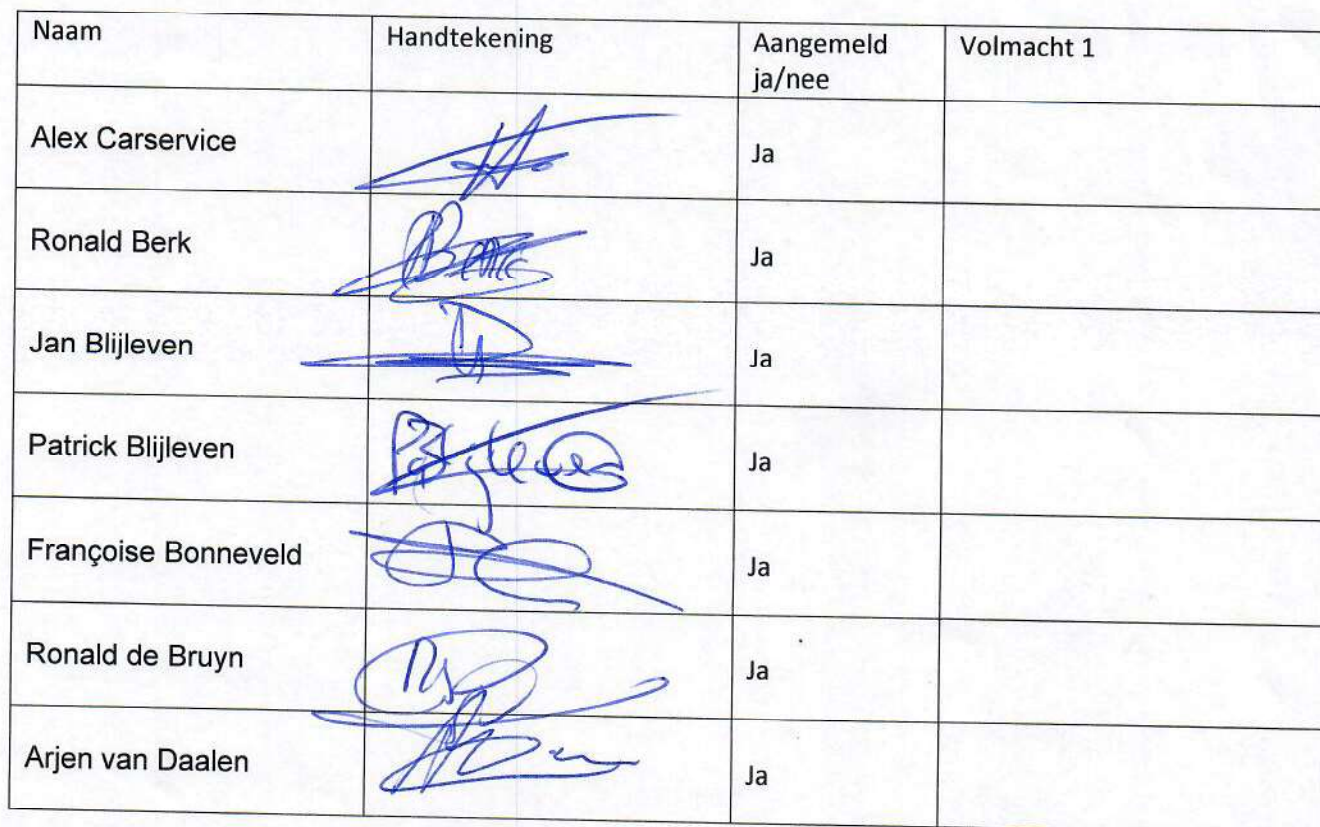 Naam Handtekening Aangemeld Volmacht 1
ja/nee
Alex Carservice Ja
Ronald Berk Ja
Jan Blijleven Ja
Patrick Blijleven Ja
Françoise Bonneveld Ja
Ronald de Bruyn Ja
Arjen van Daalen Ja